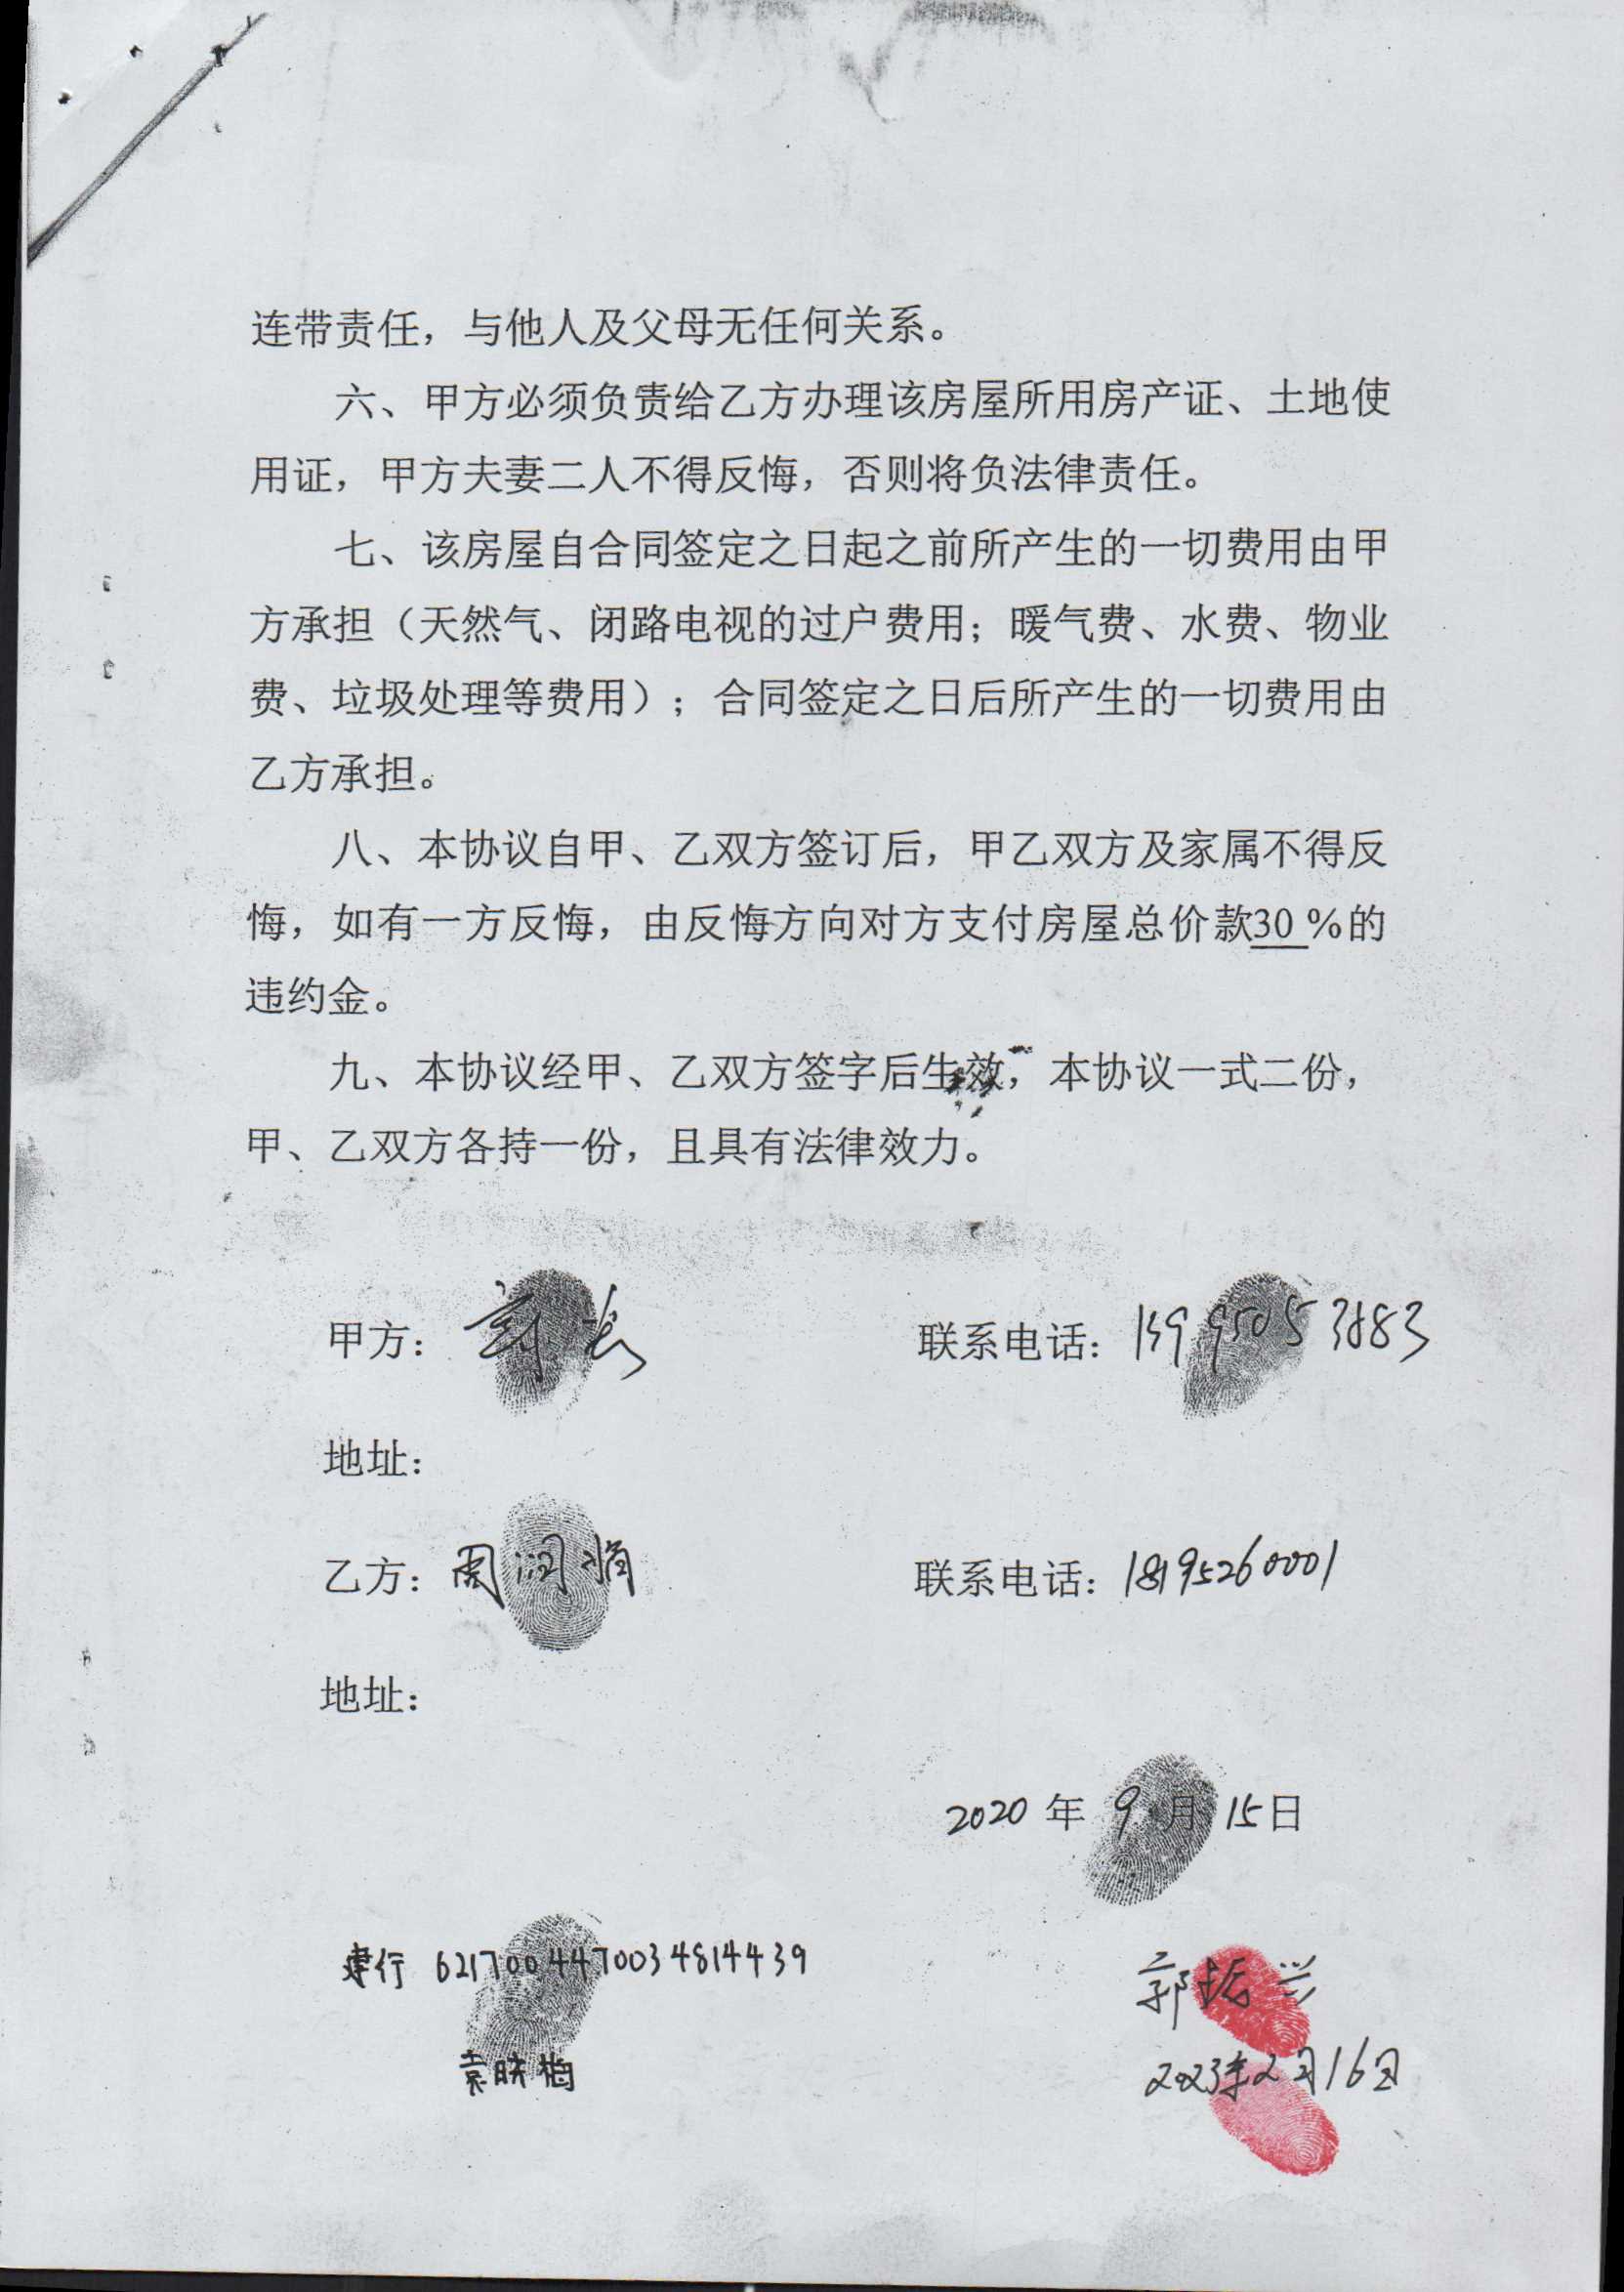 连带责任，与他人及父母无任何关系。
六、甲方必须负责给乙方办理该房屋所用房产证、土地使
用证，甲方夫妻二人不得反悔，否则将负法律责任。
七、该房屋自合同签定之日起之前所产生的一切费用由甲
方承担（天然气、闭路电视的过户费用；暖气费、水费、物业
费、垃圾处理等费用）；合同签定之日后所产生的一切费用由
乙方承担。
八、本协议自甲、乙双方签订后，甲乙双方及家属不得反
悔，如有一方反悔，由反悔方向对方支付房屋总价款30 %的
违约金。
九、本协议经甲、乙双方签字后生效，本协议一式二份，
甲、乙双方各持一份，且具有法律效力。
甲方： 联系电话：13995053883
地址：
乙方：周润 联系电话：18195260001
地址：
2020 年 9 月 15日
建行 6217004470034814439
郭振兴
袁晓梅
2023年2月16日